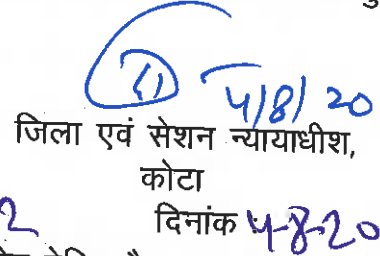 4/8/20
जिला एवं सेशन न्यायाधीश,
कोटा
दिनांक : 4-8-20
2